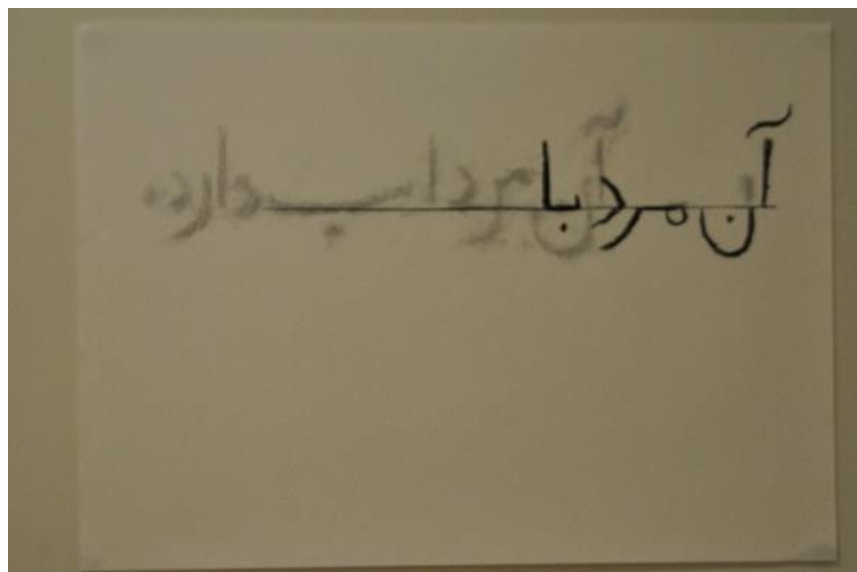 آن مرد با
آن مرد اسب دارد.